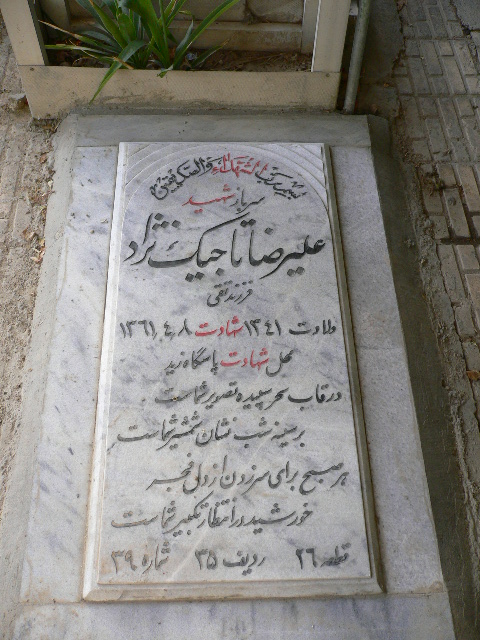 بسم رب الشهداء و الصدیقین
سرباز شهید
علیرضا تاجیک نژاد
فرزند تقی
ولادت ۱۳۴۱ شهادت ۱۳۶۱٫۴٫۸
محل شهادت پاسگاه زید
در قاب سحر سپیده تصویر شماست
بر سینه شب نشان شمشیر شماست
هر صبح برای سر زدن از دل فجر
خورشید در انتظار تکبیر شماست
قطعه ۲۶ ردیف ۳۵ شماره ۳۹